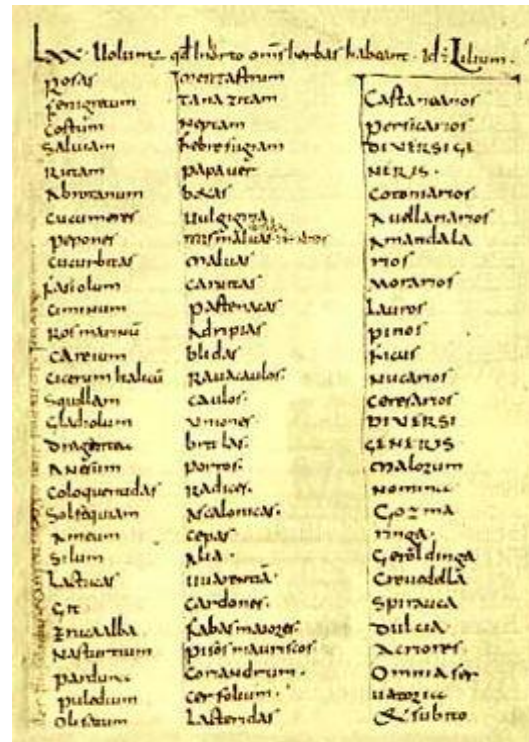 Lxx. Uolumus qd in horto omnes herbas habeant. Id est Lilium.
Rosas
Fenigrecum
Costum
Saluiam
Rutam
Abrotanum
Cucumeres
Pepones
Cucurbitas
Fasiolum
Ciminum
Ros marinū
Careium
Cicerum Italicū
Squillam
Gladiolum
Dragantea
Anesum
Coloquentidas
Solsequiam
Ameum
Silum
Lactucas
Git
Eruca alba
Nasturtium
Parduna
Puledium
Olisatum
Mentastrum
Tanazitam
Neptam
Febrefugiam
Papauer
Betas
Uulgigina
maluas
Maluas
Caruitas
Pastenacas
Adripias
Blidas
Rauacaulos.
Caulos.
Uniones.
Britlas.
Porros.
Radices.
Ascalonicas.
Cepas
Alia.
Uuarentiā.
Cardones.
Fabas maiores
Pisos mauriscos
Coriandrum.
Cerfolium.
Lacteridas
Castanearios
Persicarios
DIVERSI GE
NERIS.
Cotoniarios
Auellanarios
Amandala
rios
Morarios
Lauros
Pinos
Ficus
Nucarios
Ceresarios
DIVERSI
GENERIS
Malorum
Nomina
Gozma
ringa.
Geroldinga
Creuedella
Spirauca
Dulcia
Acriores
Omnia ser
uatoria
& subito